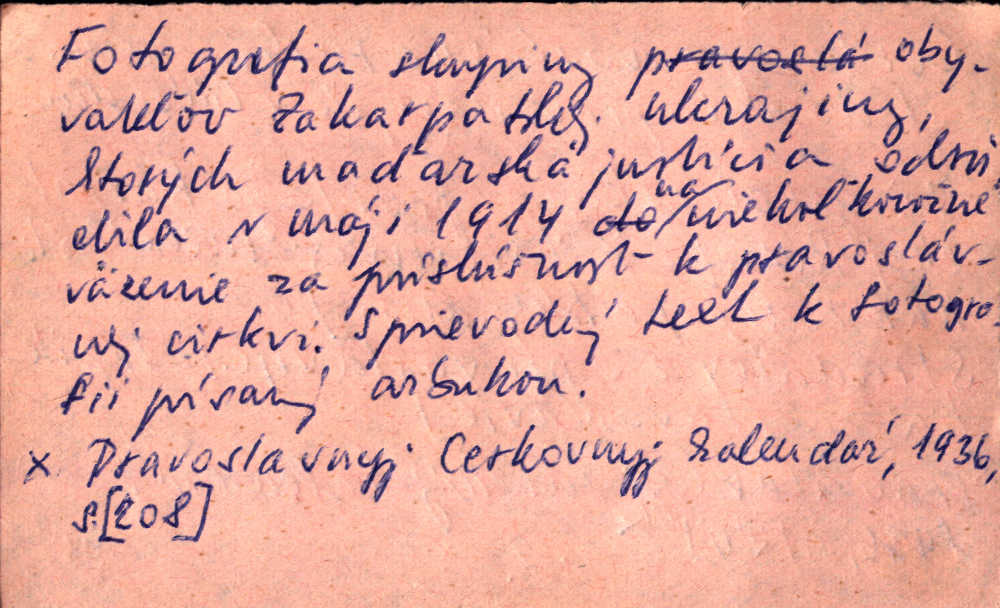 Fotografia skupiny pravoslá oby-
vateľov Zakarpatskej ukrajiny,
ktorých maďarská justícia odsú
dila v máji 1914 do na niekoľkoročné
väzenie za príslušnosť k pravosláv-
nej cirkvi. Sprievodný text k fotogra-
fii písaný azbukou.
x Pravoslavnyj Cerkovnyj kalendar', 1936,
s.[208]